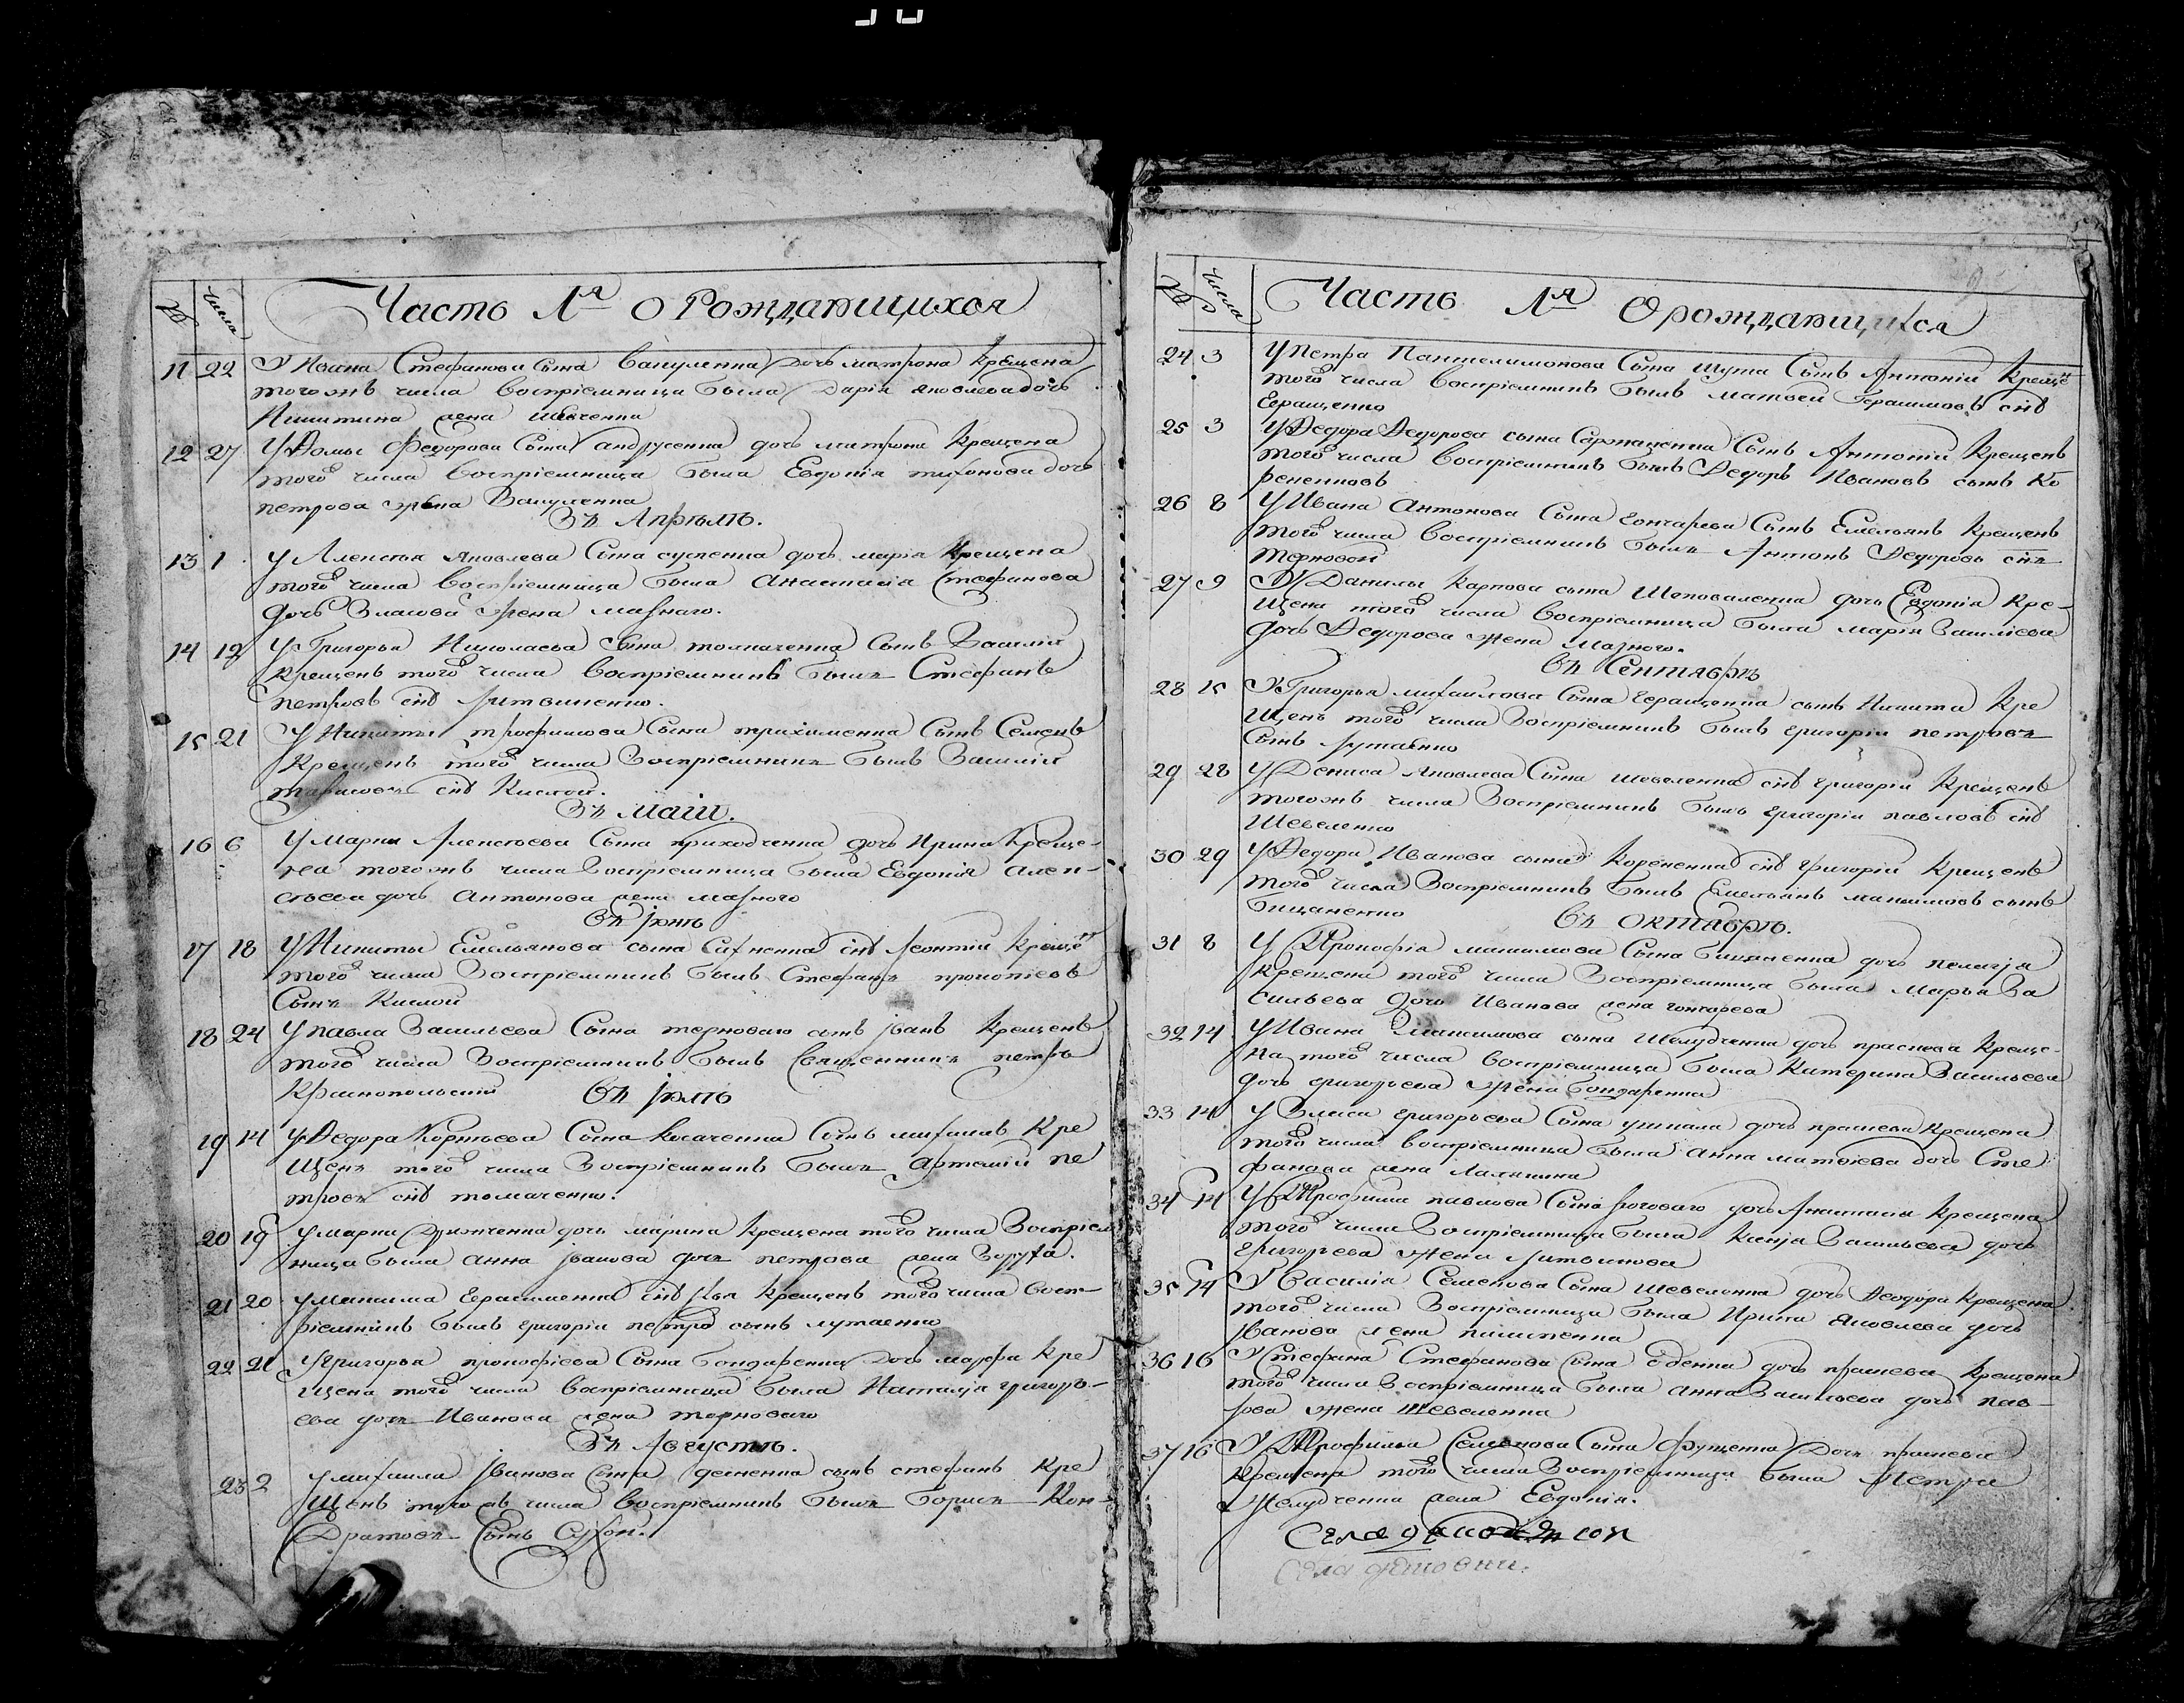 № числа
Часть 1я о Рождающихся
11 22 У Ивана Стефанова сына Вакуленка дочь матрона крещена
того жъ числа воспріемница была Дарія яковлева дочь
Никитина жена Шевченка
12 27 У Фомы Федорова сына андрусенка дочь матрона крещена
того числа воспріемница была Евдокія тихонова дочь
петрова жена Вакуленка
Въ Апрѣлѣ.
13 1 У Алексѣя Яковлева сына сусленка дочь марія крещена
того числа воспріемница была Анастасія Стефанова
дочь Власова жена мазнаго.
14 12 У Григорья Николаева сына толмаченка сынъ Василій
крещенъ того числа воспріемникъ былъ Стефанъ
петровъ снъ Литвиненко.
15 21 У Никиты трофимова сына сынъ Семенъ
крещенъ того числа Воспріемникъ былъ Василій
снъ Кислой.
Въ маіи.
16 6 У Марка Алексѣева сына приходченка дочь Ирина креще-
на того жъ числа Воспріемница была Евдокія алек-
сѣева дочь антонова жена мазного
Въ іюнѣ
17 18 У Никиты Емельянова сына снъ Леонтій креще
того числа Воспріемникъ былъ Стефанъ прокопіевъ
сынъ Кислой
18 24 У павла Васильева сына терноваго сынъ іванъ крещенъ
того числа Воспріемникъ былъ Священникъ петръ
Краснопольскій
Въ іюлѣ
19 14 У Федора Корнѣева сына Косаченка сынъ михаилъ кре
щенъ того числа Воспріемникъ былъ Артемій пе
тровъ снъ толмаченко.
20 19 У марка дочь марина крещена того числа Воспріем
ница была анна іванова дочь петрова жена
21 20 У максима Герасименка снъ Илья крещенъ того числа восп-
ріемникъ былъ григорій петро сынъ лутаенко
22 21 У григорья прокофіева сына бондаренка дочь марфа кре
щена того числа воспріемница была Наталія григорь-
ева дочь Иванова жена терноваго
Въ Августѣ.
23 2 У михаила іванова сына сынъ стефанъ кре
щенъ того жъ числа воспріемникъ былъ борисъ Кон-
дратовъ сынъ
№ числа
9
Часть 1я О рождающихся
24 3 У Петра Пантелимонова сына Шута сынъ Антоній креще
того числа воспріемникъ былъ матвей Герасимовъ снъ
Геращенко
25 3 У Федора Федорова сына сынъ Антоній крещенъ
того числа воспріемникъ былъ Федоръ Ивановъ сынъ Ко
ренековъ
26 8 У Ивана Антонова сына гончарева сынъ Емельянъ крещенъ
того числа воспріемникъ былъ Антонъ Федоровъ снъ
Терновой
27 9 У Данилы карпова сына Шаповаленка дочь Евдокія кре-
щена того числа воспріемница была марія Василіева
дочь Федорова жена Мазного.
Въ Сентябрѣ
28 15 У Григорья михайлова сына Геращенка сынъ Никита кре
щенъ того числа Воспріемникъ былъ григорій петровъ
сынъ лутаенко
29 28 У Дениса яковлева сына шевеленка снъ григорій крещенъ
того жъ числа Воспріемникъ былъ григорій павловъ снъ
Шевеленко
30 29 У Федора Иванова сына Корененка снъ григорій крещенъ
того числа Воспріемникъ былъ Емельянъ максимовъ сынъ
Бицаненко
Въ октябрѣ.
31 8 У Прокофія максимова сына дочь пелагія
крещена того числа Воспріемница была Марья Ва
сильева дочь Иванова жена гончарева
32 14 У Ивана максимова сына Шелудченка дочь праскева креще-
на того числа воспріемница была Катерина Васильева
дочь григорьева жена бондаренка
33 14 У Власа григорьева сына дочь праскева крещена
того числа воспріемница была анна матвіева дочь Сте
фанова жена
34 14 У Трофима павлова сына дочь Анастасія крещена
того числа Воспріемница была Ксенія Васильева дочь
григорьева жена литвинова
35 14 У Василія Семенова сына шевеленка дочь Феодора крещена
того числа Воспріемница была Ирина яковлева дочь
іванова жена пилипенка
36 16 У Стефана Стефанова сына дочь праскева крещена
того числа Воспріемница была анна Васильева дочь пав-
лова жена шевеленка
37 16 У Трофима Семенова сына дочь праскева
крещена того числа Воспріемница была Петра
Шелудченка жена Евдокія.